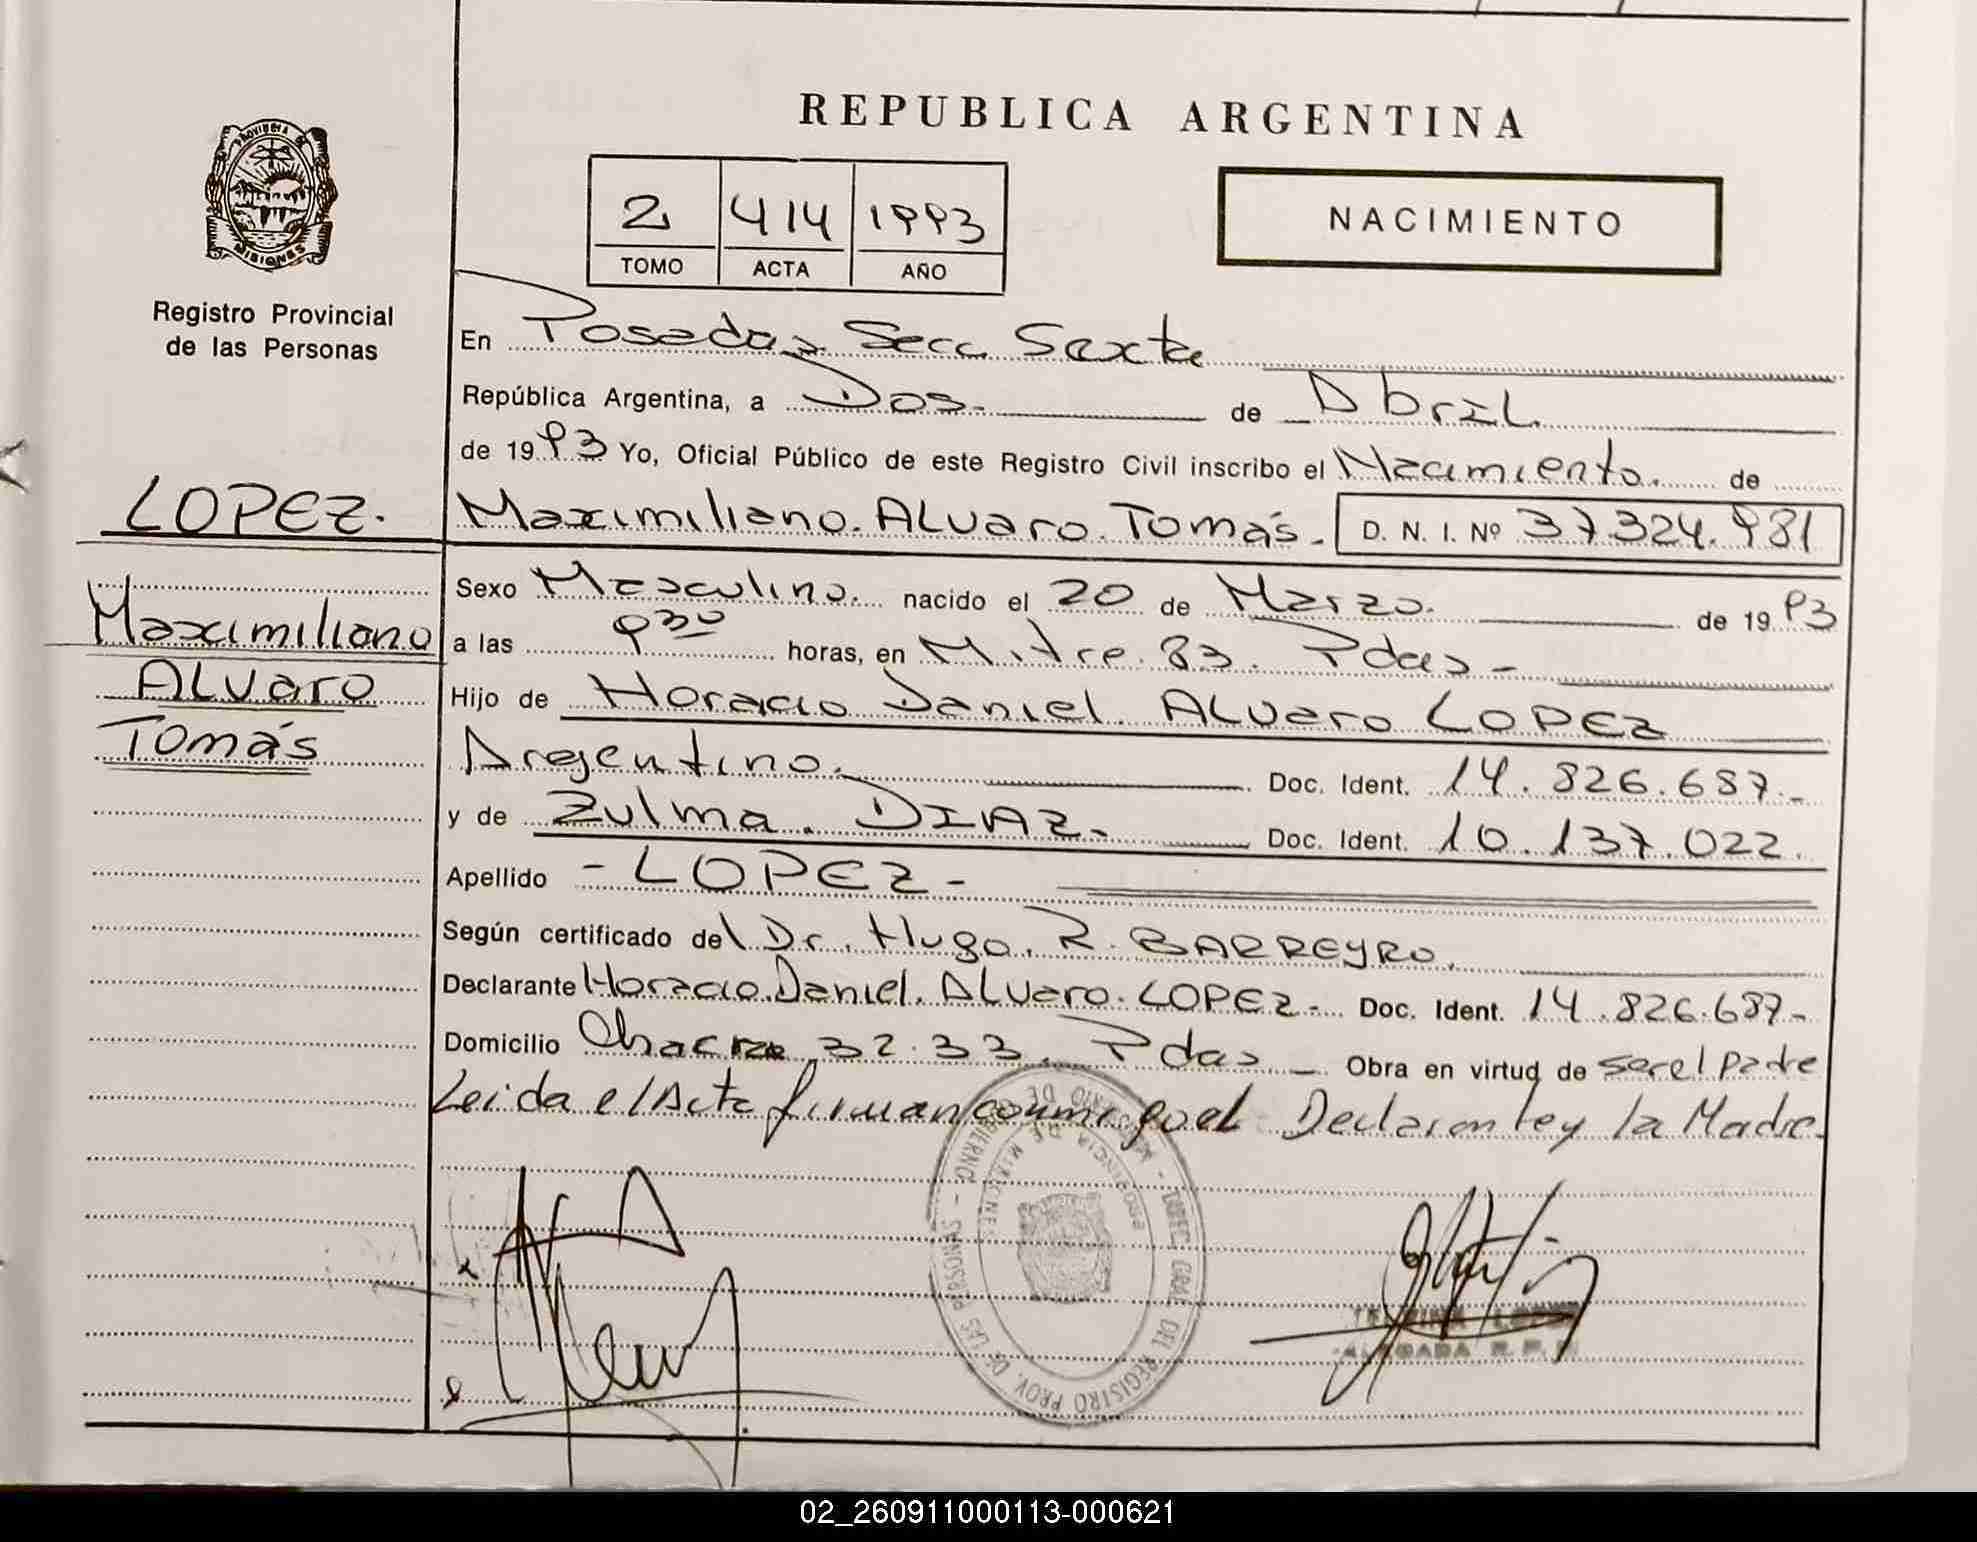 REPUBLICA ARGENTINA
PROVINCIA DE
MISIONES
Registro Provincial
de las Personas
2 414 1993
TOMO ACTA AÑO
NACIMIENTO
En Posadas Secc Sexta
República Argentina, a Dos.- de Abril
de 1993 Yo, Oficial Público de este Registro Civil inscribo el Nacimiento. de
LOPEZ.
Maximiliano. ALVaro. Tomás. D. N. I. Nº 37.324.981
Maximiliano
ALVaro
Tomás
Sexo Masculino. nacido el 20 de Marzo. de 1993
a las 9 30 horas, en Mitre 83. Pdas -
Hijo de Horacio Daniel. ALVaro LOPEZ
Argentino. Doc. Ident. 14.826.687.-
y de Zulma. DIAZ.- Doc. Ident. 10.137.022.
Apellido - LOPEZ -
Según certificado del Dr. Hugo. R. BARREYRO.
Declarante Horacio. Daniel. ALVaro. LOPEZ.- Doc. Ident. 14.826.687-
Domicilio Chacra 32.33. Pdas - Obra en virtud de ser el padre
Leida el Acta firman conmigo el Declarante y la Madre.
DE LAS PERSONAS - DIREC. GRAL. DEL REGISTRO PROV.
PROVINCIA DE MISIONES
02_260911000113-000621